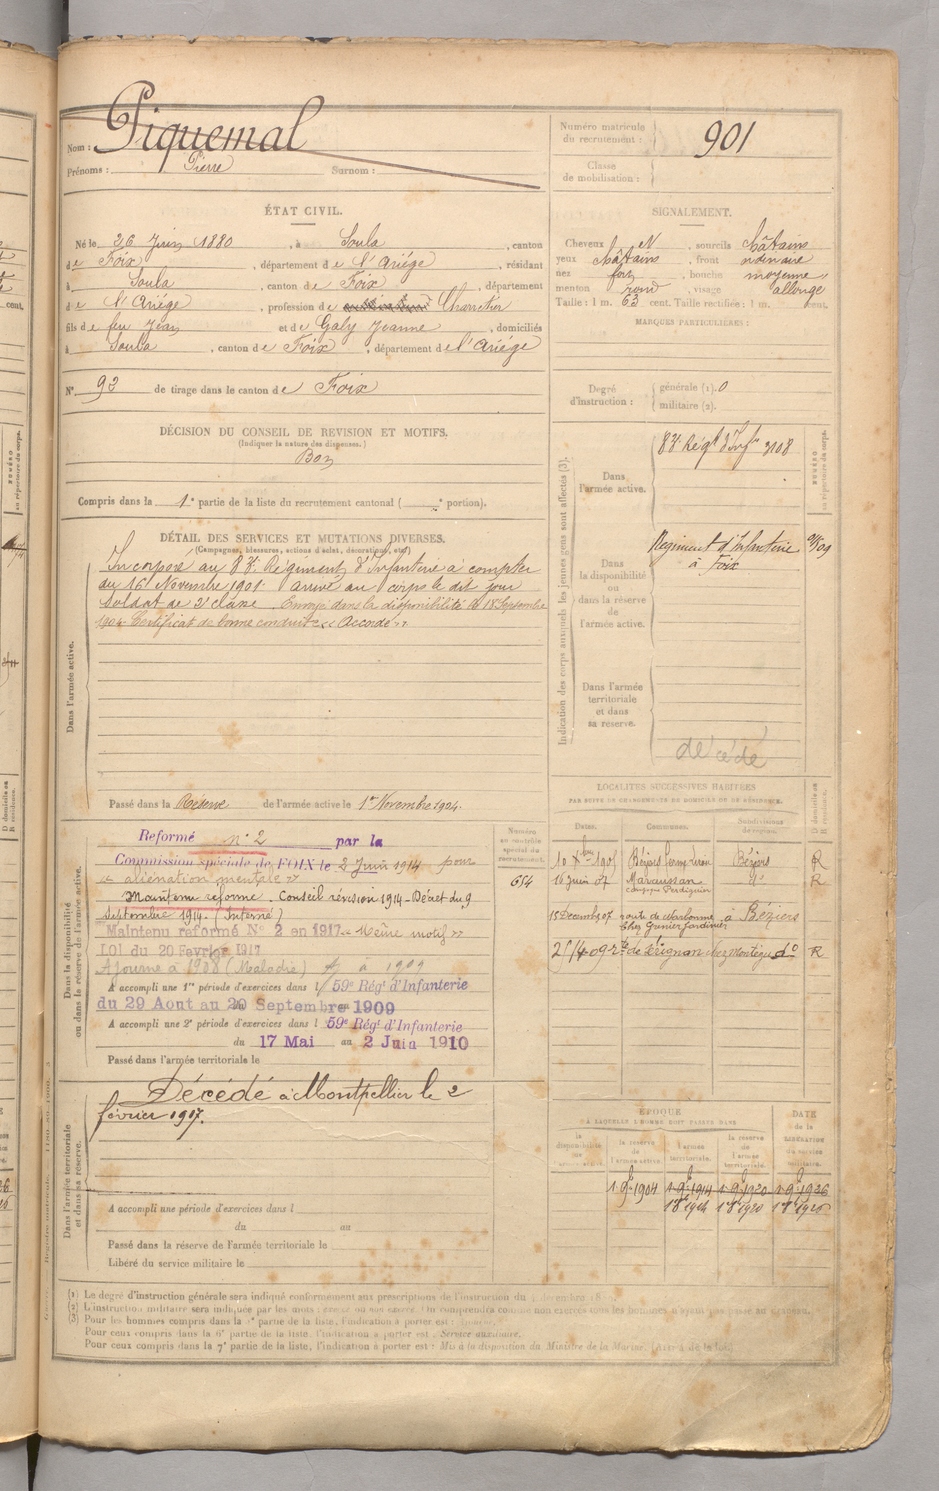 Nom : Piquemal
Prénoms : Pierre Surnom :
ÉTAT CIVIL.
Né le 26 Juin 1880, à Soula, canton
de Foix, département de l'Ariége, résidant
à Soula, canton de Foix, département
de l'Ariége, profession de Charretier
fils de feu Jean et de Galy Jeanne, domiciliés
à Soula, canton de Foix, département de l'Ariége
N° 93 de tirage dans le canton de Foix
DÉCISION DU CONSEIL DE REVISION ET MOTIFS.
(Indiquer la nature des dispenses.)
Bon
Compris dans la 1e partie de la liste du recrutement cantonal ( e portion).
DÉTAIL DES SERVICES ET MUTATIONS DIVERSES.
(Campagnes, blessures, actions d'éclat, décorations, etc.)
Dans l'armée active.
Incorporé au 83e Régiment d'Infanterie à compter
du 16 Novembre 1901 arrivé au corps le dit jour
Soldat de 2e classe. Envoyé dans la disponibilité le 18 Septembre
1904. Certificat de bonne conduite « Accordé »
Passé dans la Réserve de l'armée active le 1er Novembre 1904.
Dans la disponibilité
ou dans la réserve de l'armée active.
Reformé n° 2 par la
Commission spéciale de FOIX le 2 Juin 1914 pour
« aliénation mentale »
Maintenu reformé. Conseil révision 1914 - Décret du 9
Septembre 1914. (Interné)
Maintenu reformé N° 2 en 1917 « Même motif »
LOI du 20 Fevrier 1917
Ajourné à 1908 (Maladie) à 1909
A accompli une 1re période d'exercices dans l 59e Régt d'Infanterie
du 29 Aout au 20 Septembre 1909
A accompli une 2e période d'exercices dans l 59e Régt d'Infanterie
du 17 Mai au 2 Juin 1910
Passé dans l'armée territoriale le
Dans l'armée territoriale
et dans sa réserve.
Décédé à Montpellier le 2
février 1917.
A accompli une période d'exercices dans l
du au
Passé dans la réserve de l'armée territoriale le
Libéré du service militaire le
Numéro
au contrôle
spécial du
recrutement.
654
Numéro matricule
du recrutement : 901
Classe
de mobilisation :
SIGNALEMENT.
Cheveux et N, sourcils châtains
yeux châtains, front ordinaire
nez fort, bouche moyenne
menton rond, visage allongé
Taille : 1 m. 63 cent. Taille rectifiée : 1 m. cent.
MARQUES PARTICULIÈRES :
Degré
d'instruction :
générale (1). 0
militaire (2).
Indication des corps auxquels les jeunes gens sont affectés (3).
NUMÉRO
au répertoire du corps.
Dans
l'armée active.
83e Régt d'Infie 3108
Dans
la disponibilité
ou
dans la réserve
de
l'armée active.
Régiment d'Infanterie
à Foix
Dans l'armée
territoriale
et dans
sa réserve.
décédé
LOCALITÉS SUCCESSIVES HABITÉES
PAR SUITE DE CHANGEMENTS DE DOMICILE OU DE RÉSIDENCE.
D domicile ou
R résidence.
Dates. Communes. Subdivisions de région.
10 Xbre 1905 Béziers Béziers R
16 Juin 07 Maraussan do R
campagne Perdiguier
15 Decembre 07 route de Narbonne à Béziers
chez Grenier Jardinier
25/4-09 rte de Sérignan chez Montagné do R
ÉPOQUE
À LAQUELLE L'HOMME DOIT PASSER DANS
la disponibilité
la réserve de l'armée active.
l'armée territoriale.
la réserve de l'armée territoriale.
DATE
de la
LIBÉRATION
du service
militaire.
1 9e 1904 1 9e 1914 1 9e 1920 1 9e 1926
(1) Le degré d'instruction générale sera indiqué conformément aux prescriptions de l'instruction du
(2) L'instruction militaire sera indiquée par les mots : exercé ou non exercé. On comprendra comme non exercés tous les hommes n'ayant pas passé au drapeau.
(3) Pour les hommes compris dans la partie de la liste, l'indication à porter est :
Pour ceux compris dans la 6e partie de la liste, l'indication à porter est : Service auxiliaire.
Pour ceux compris dans la 7e partie de la liste, l'indication à porter est : Mis à la disposition du Ministre de la Marine. (Art. 4 de la loi.)